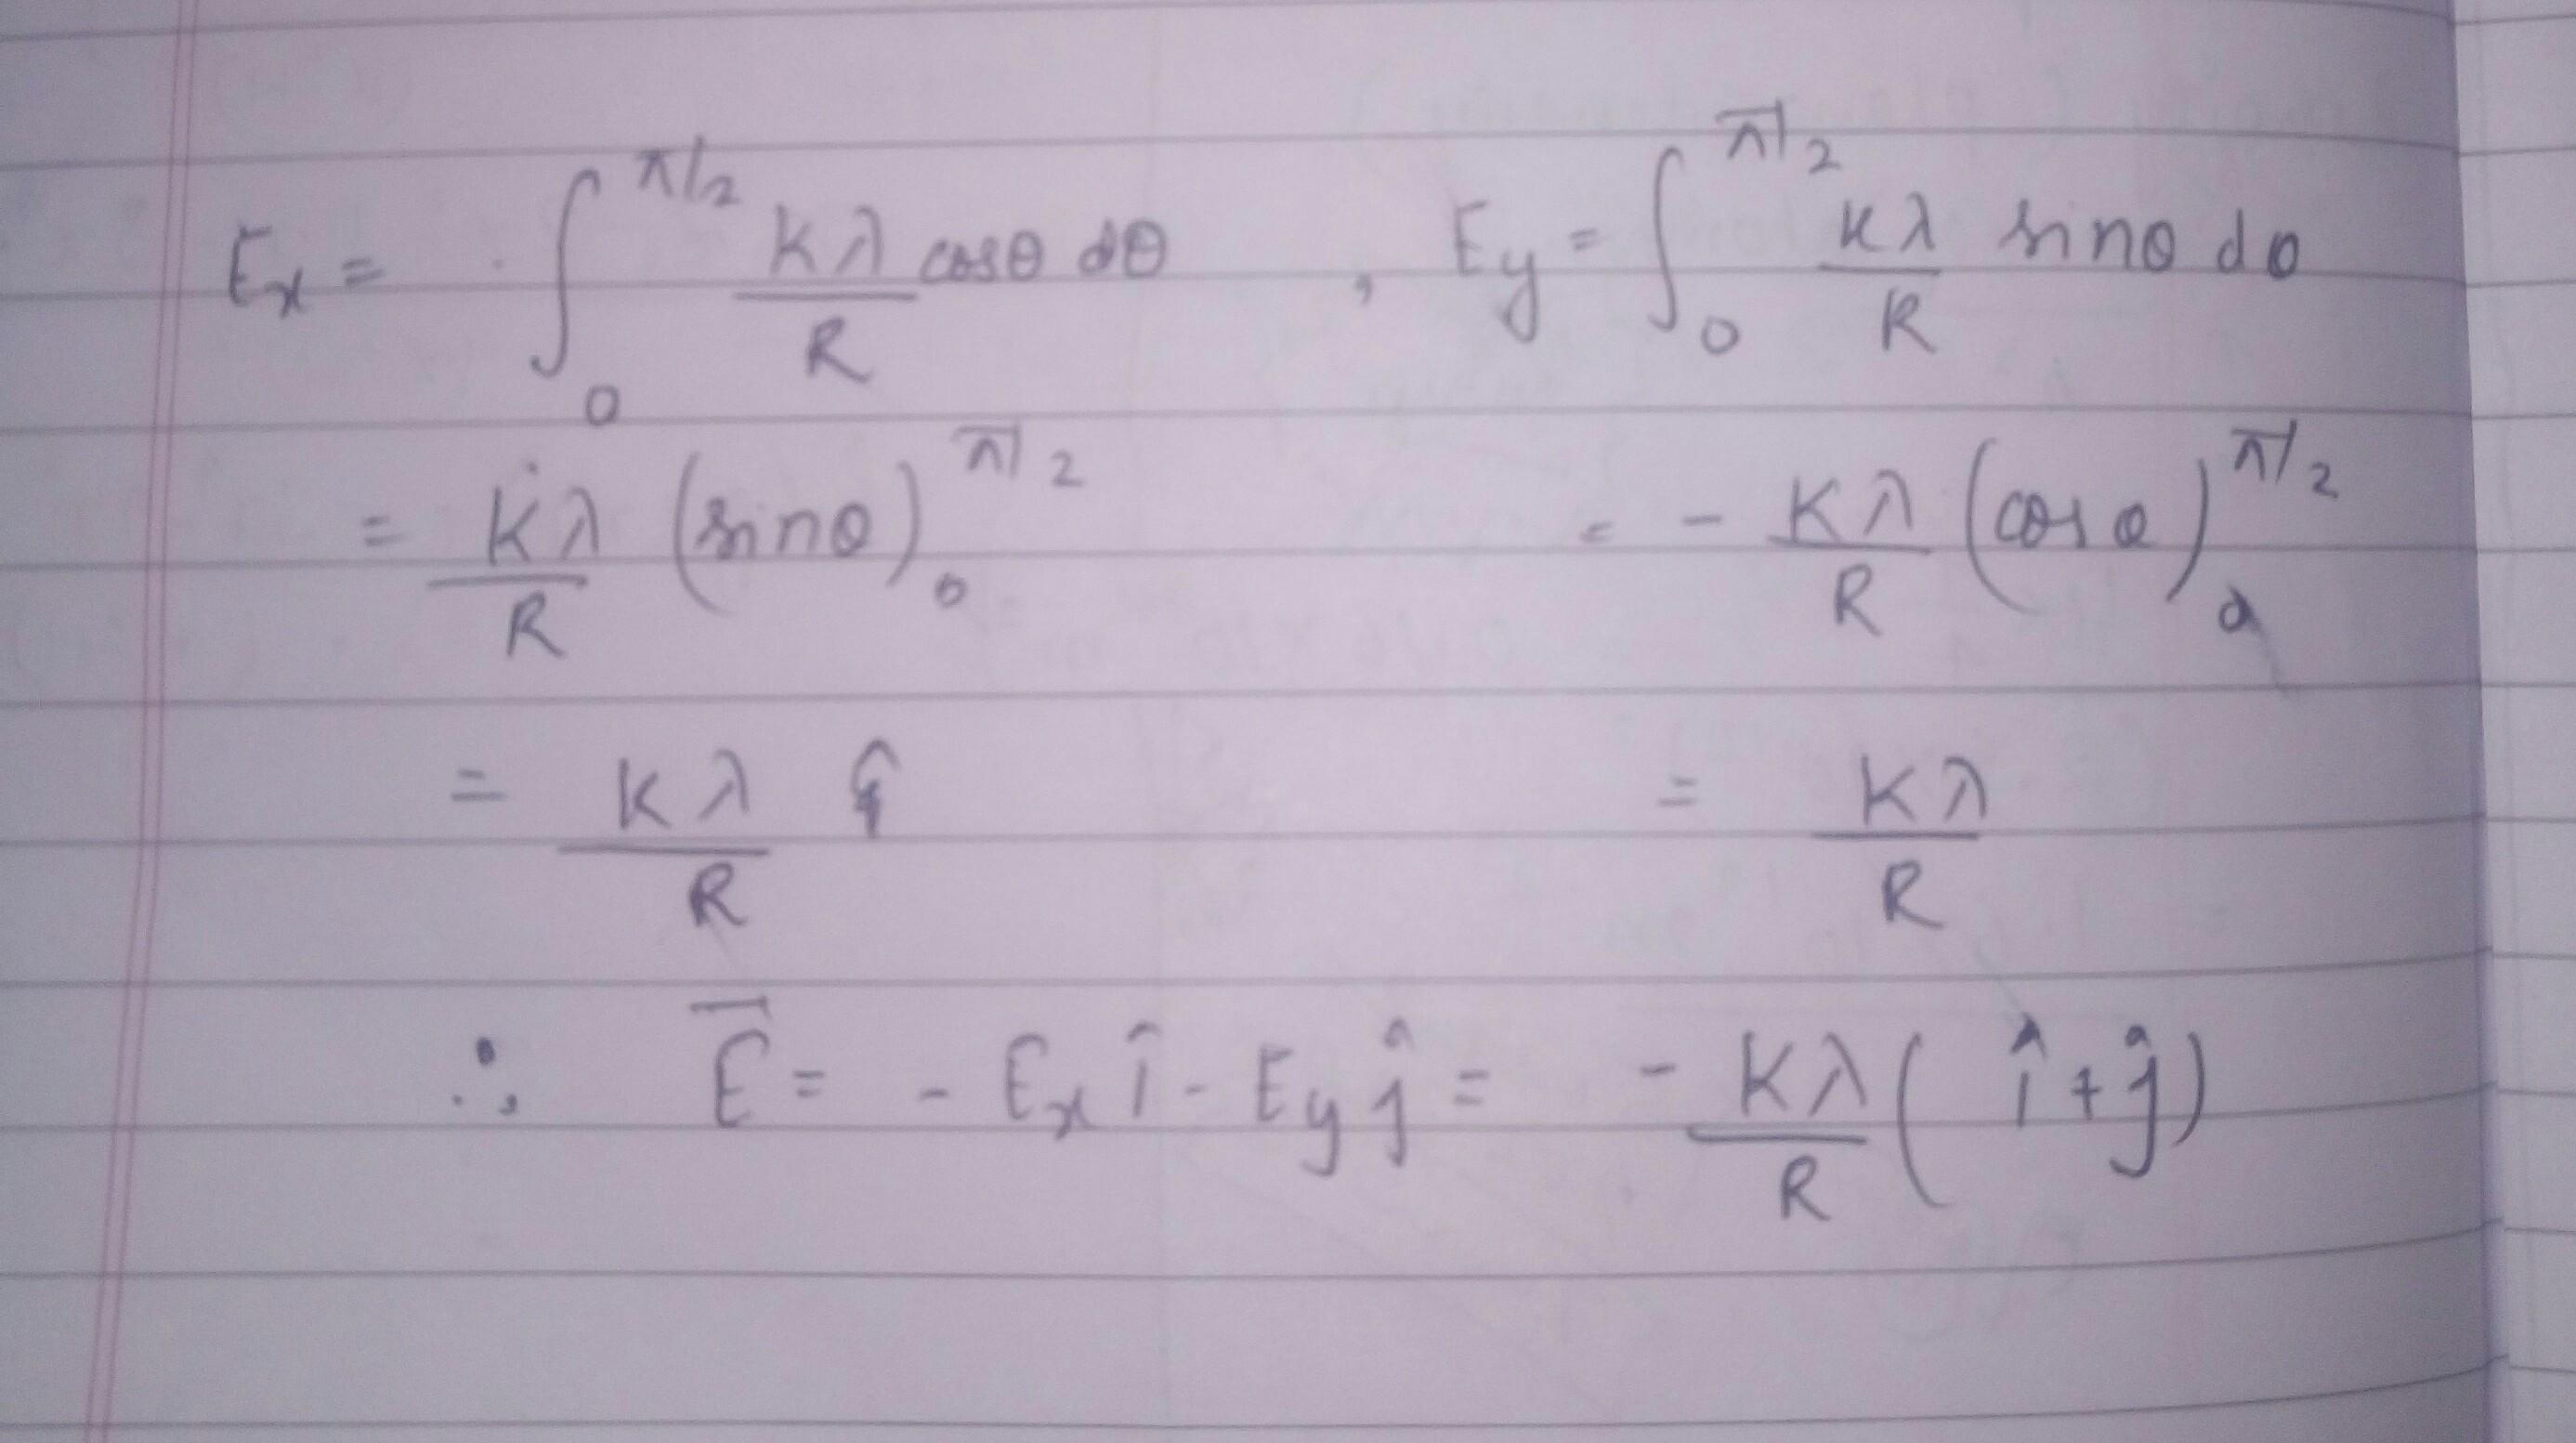 Ex = ∫₀^π/2 Kλ/R cosθ dθ , Ey = ∫₀^π/2 Kλ/R sinθ dθ
= Kλ/R (sinθ)₀^π/2 = - Kλ/R (cosθ)₀^π/2
= Kλ/R = Kλ/R
∴ E̅ = - Ex î - Ey ĵ = - Kλ/R ( î + ĵ )